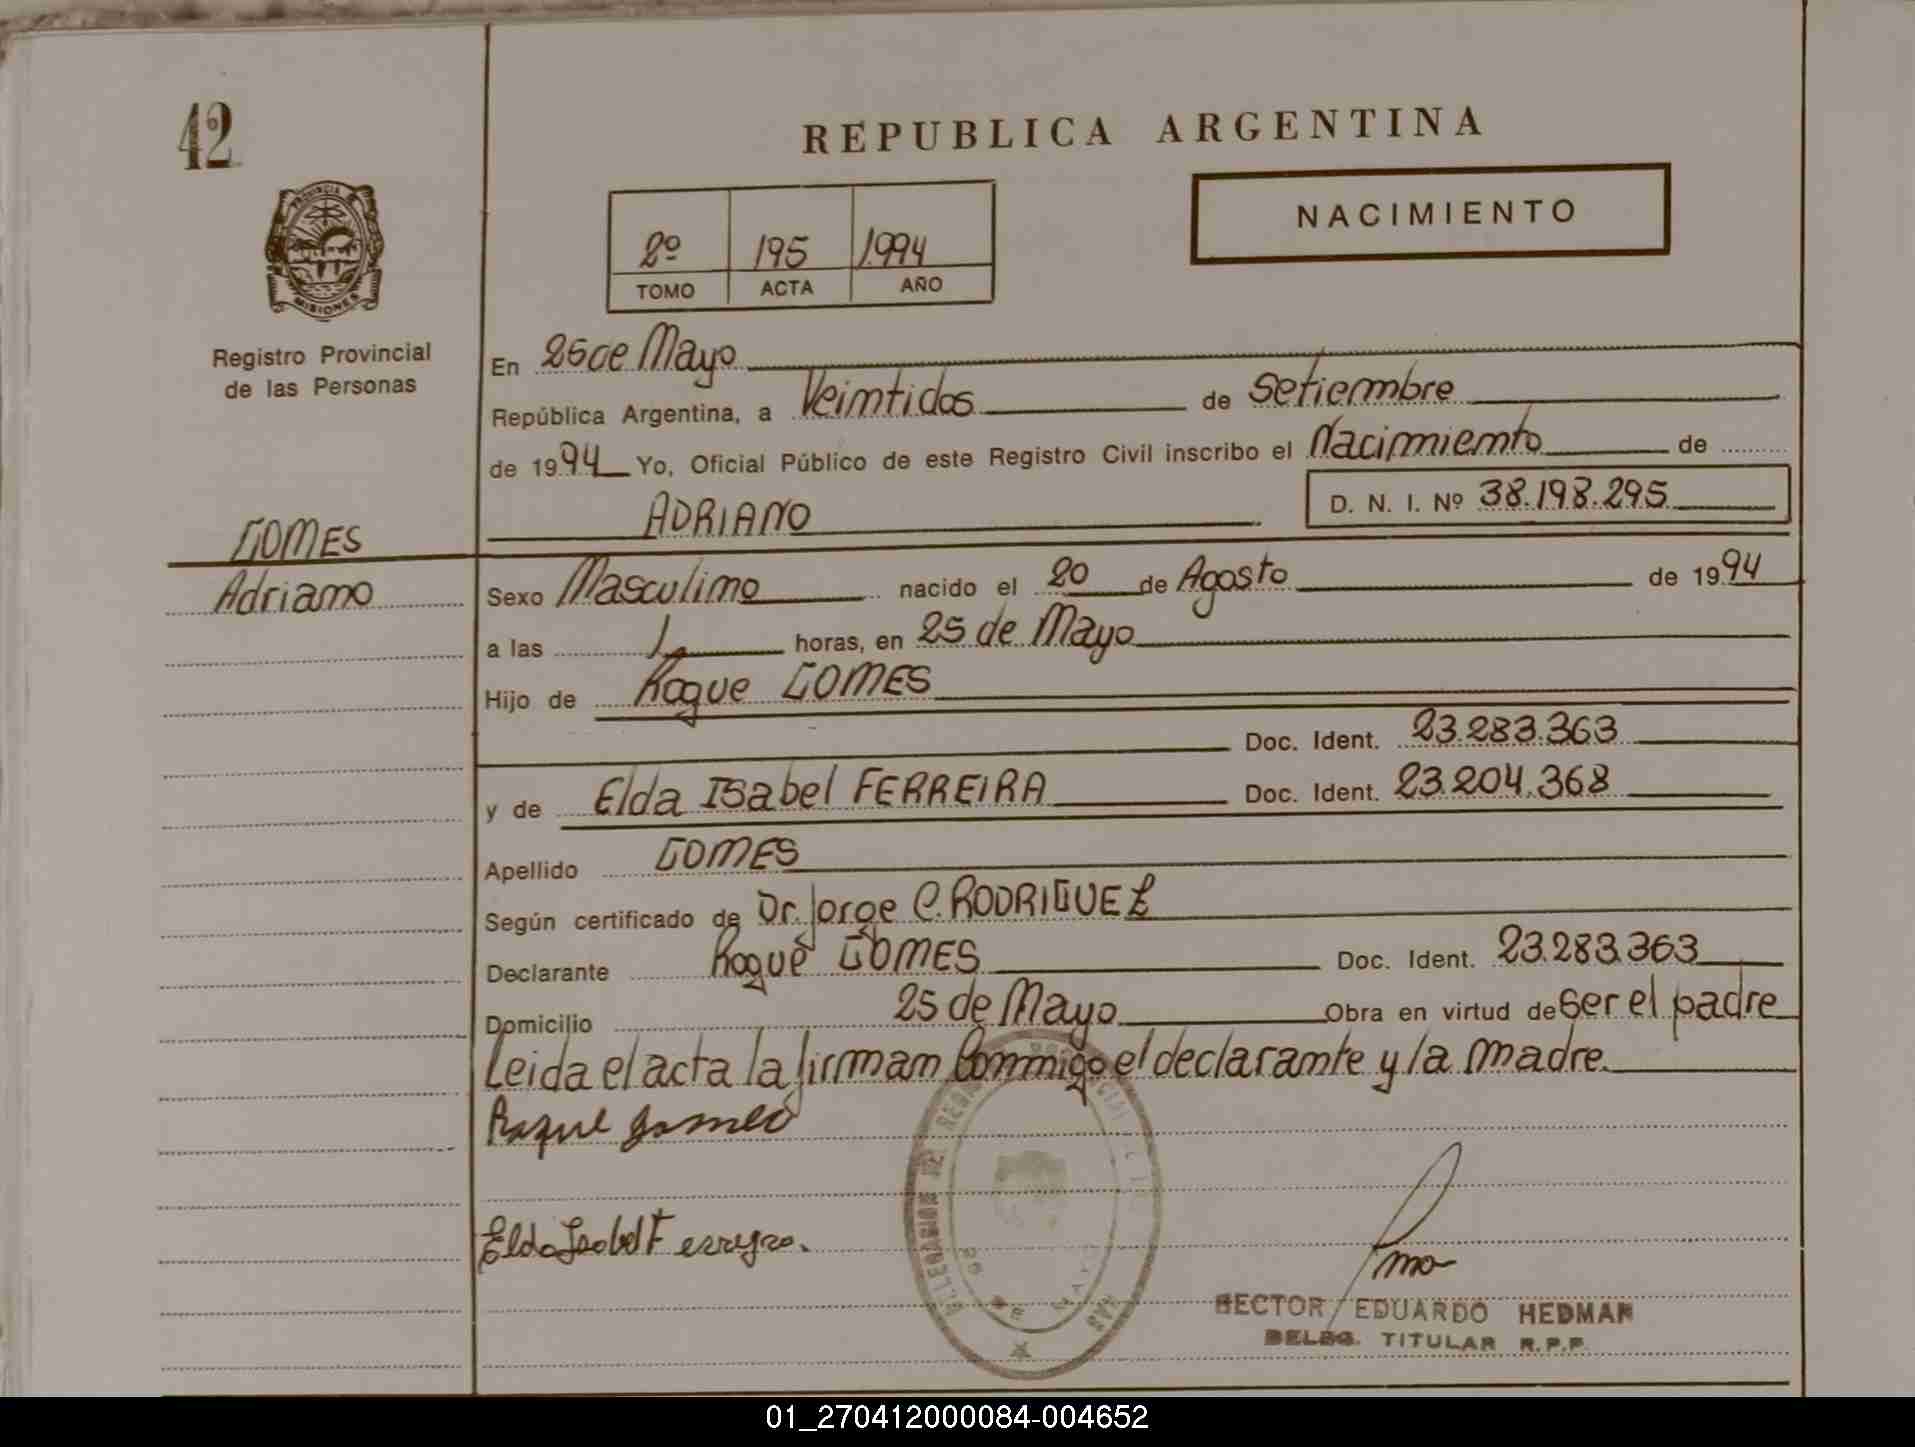 42
REPUBLICA ARGENTINA
NACIMIENTO
2º 195 1994
TOMO ACTA AÑO
PROVINCIA
MISIONES
Registro Provincial
de las Personas
En 25 de Mayo
República Argentina, a Veimtidos de Setiembre
de 1994 Yo, Oficial Público de este Registro Civil inscribo el Nacimiento de
ADRIANO D. N. I. Nº 38.198.295
GOMES
Adriano
Sexo Masculino nacido el 20 de Agosto de 1994
a las 1 horas, en 25 de Mayo
Hijo de Roque GOMES
Doc. Ident. 23.283.363
y de Elda Isabel FERREIRA Doc. Ident. 23.204.368
Apellido GOMES
Según certificado de Dr. Jorge C. RODRIGUEZ
Declarante Roque GOMES Doc. Ident. 23.283.363
Domicilio 25 de Mayo Obra en virtud de ser el padre
Leida el acta la firman Conmigo el declarante y la madre.
Roque Gomes
Elda Isabel Ferreyra.
HECTOR EDUARDO HEDMAN
DELEG. TITULAR R.P.P.
01_270412000084-004652